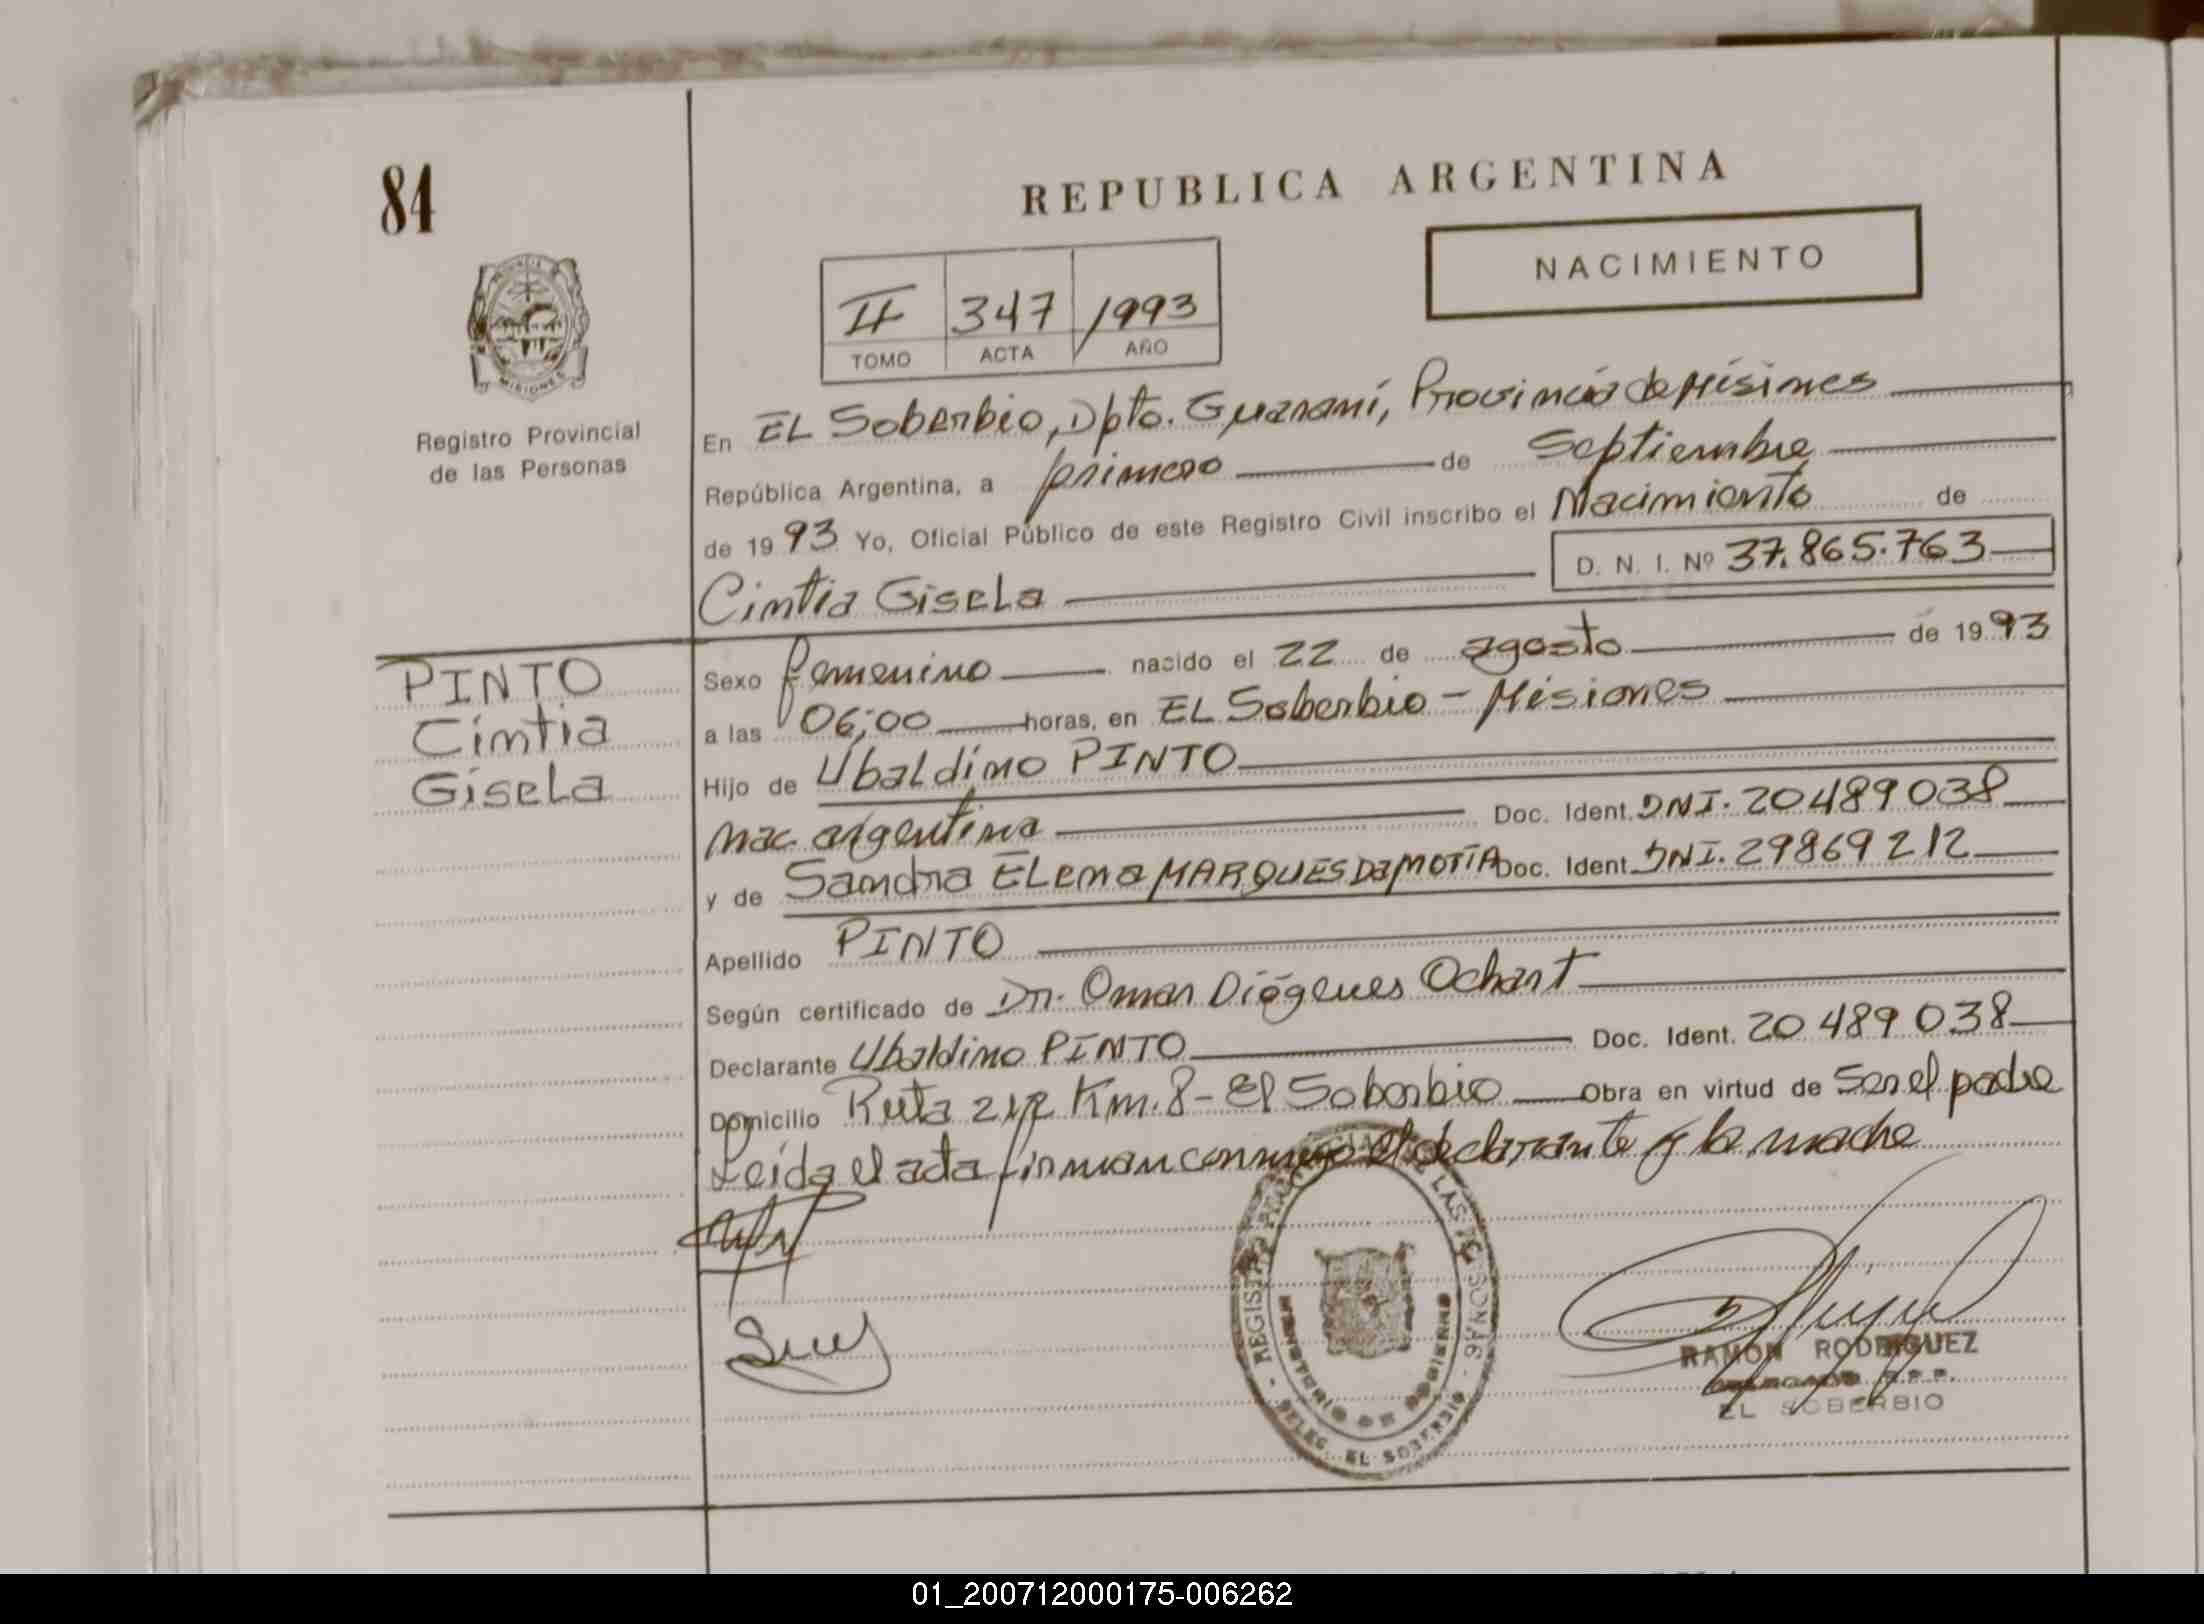 84
REPUBLICA ARGENTINA
NACIMIENTO
II 347 1993
TOMO ACTA AÑO
MISIONES
Registro Provincial
de las Personas
En EL Soberbio, Dpto. Guaraní, Provincia de Misiones
República Argentina, a primero de Septiembre
de 1993 Yo, Oficial Público de este Registro Civil inscribo el Nacimiento de
Cintia Gisela D. N. I. Nº 37.865.763
PINTO
Cintia
Gisela
Sexo femenino nacido el 22 de agosto de 1993
a las 06;00 horas, en EL Soberbio - Misiones
Hijo de Ubaldino PINTO
nac. argentina Doc. Ident. DNI. 20489038
y de Sandra ELena MARQUES Da MOTTA Doc. Ident. DNI. 29869212
Apellido PINTO
Según certificado de Dr. Omar Diógenes Ochart
Declarante Ubaldino PINTO Doc. Ident. 20489038
Domicilio Ruta 212 Km. 8 - El Soberbio Obra en virtud de Ser el padre
Leída el acta firman conmigo el declarante y la madre
REGISTRO PROVINCIAL DE LAS PERSONAS
MINISTERIO DE GOBIERNO
DELEG. EL SOBERBIO
RAMON RODRIGUEZ
R.P.P.
EL SOBERBIO
01_200712000175-006262